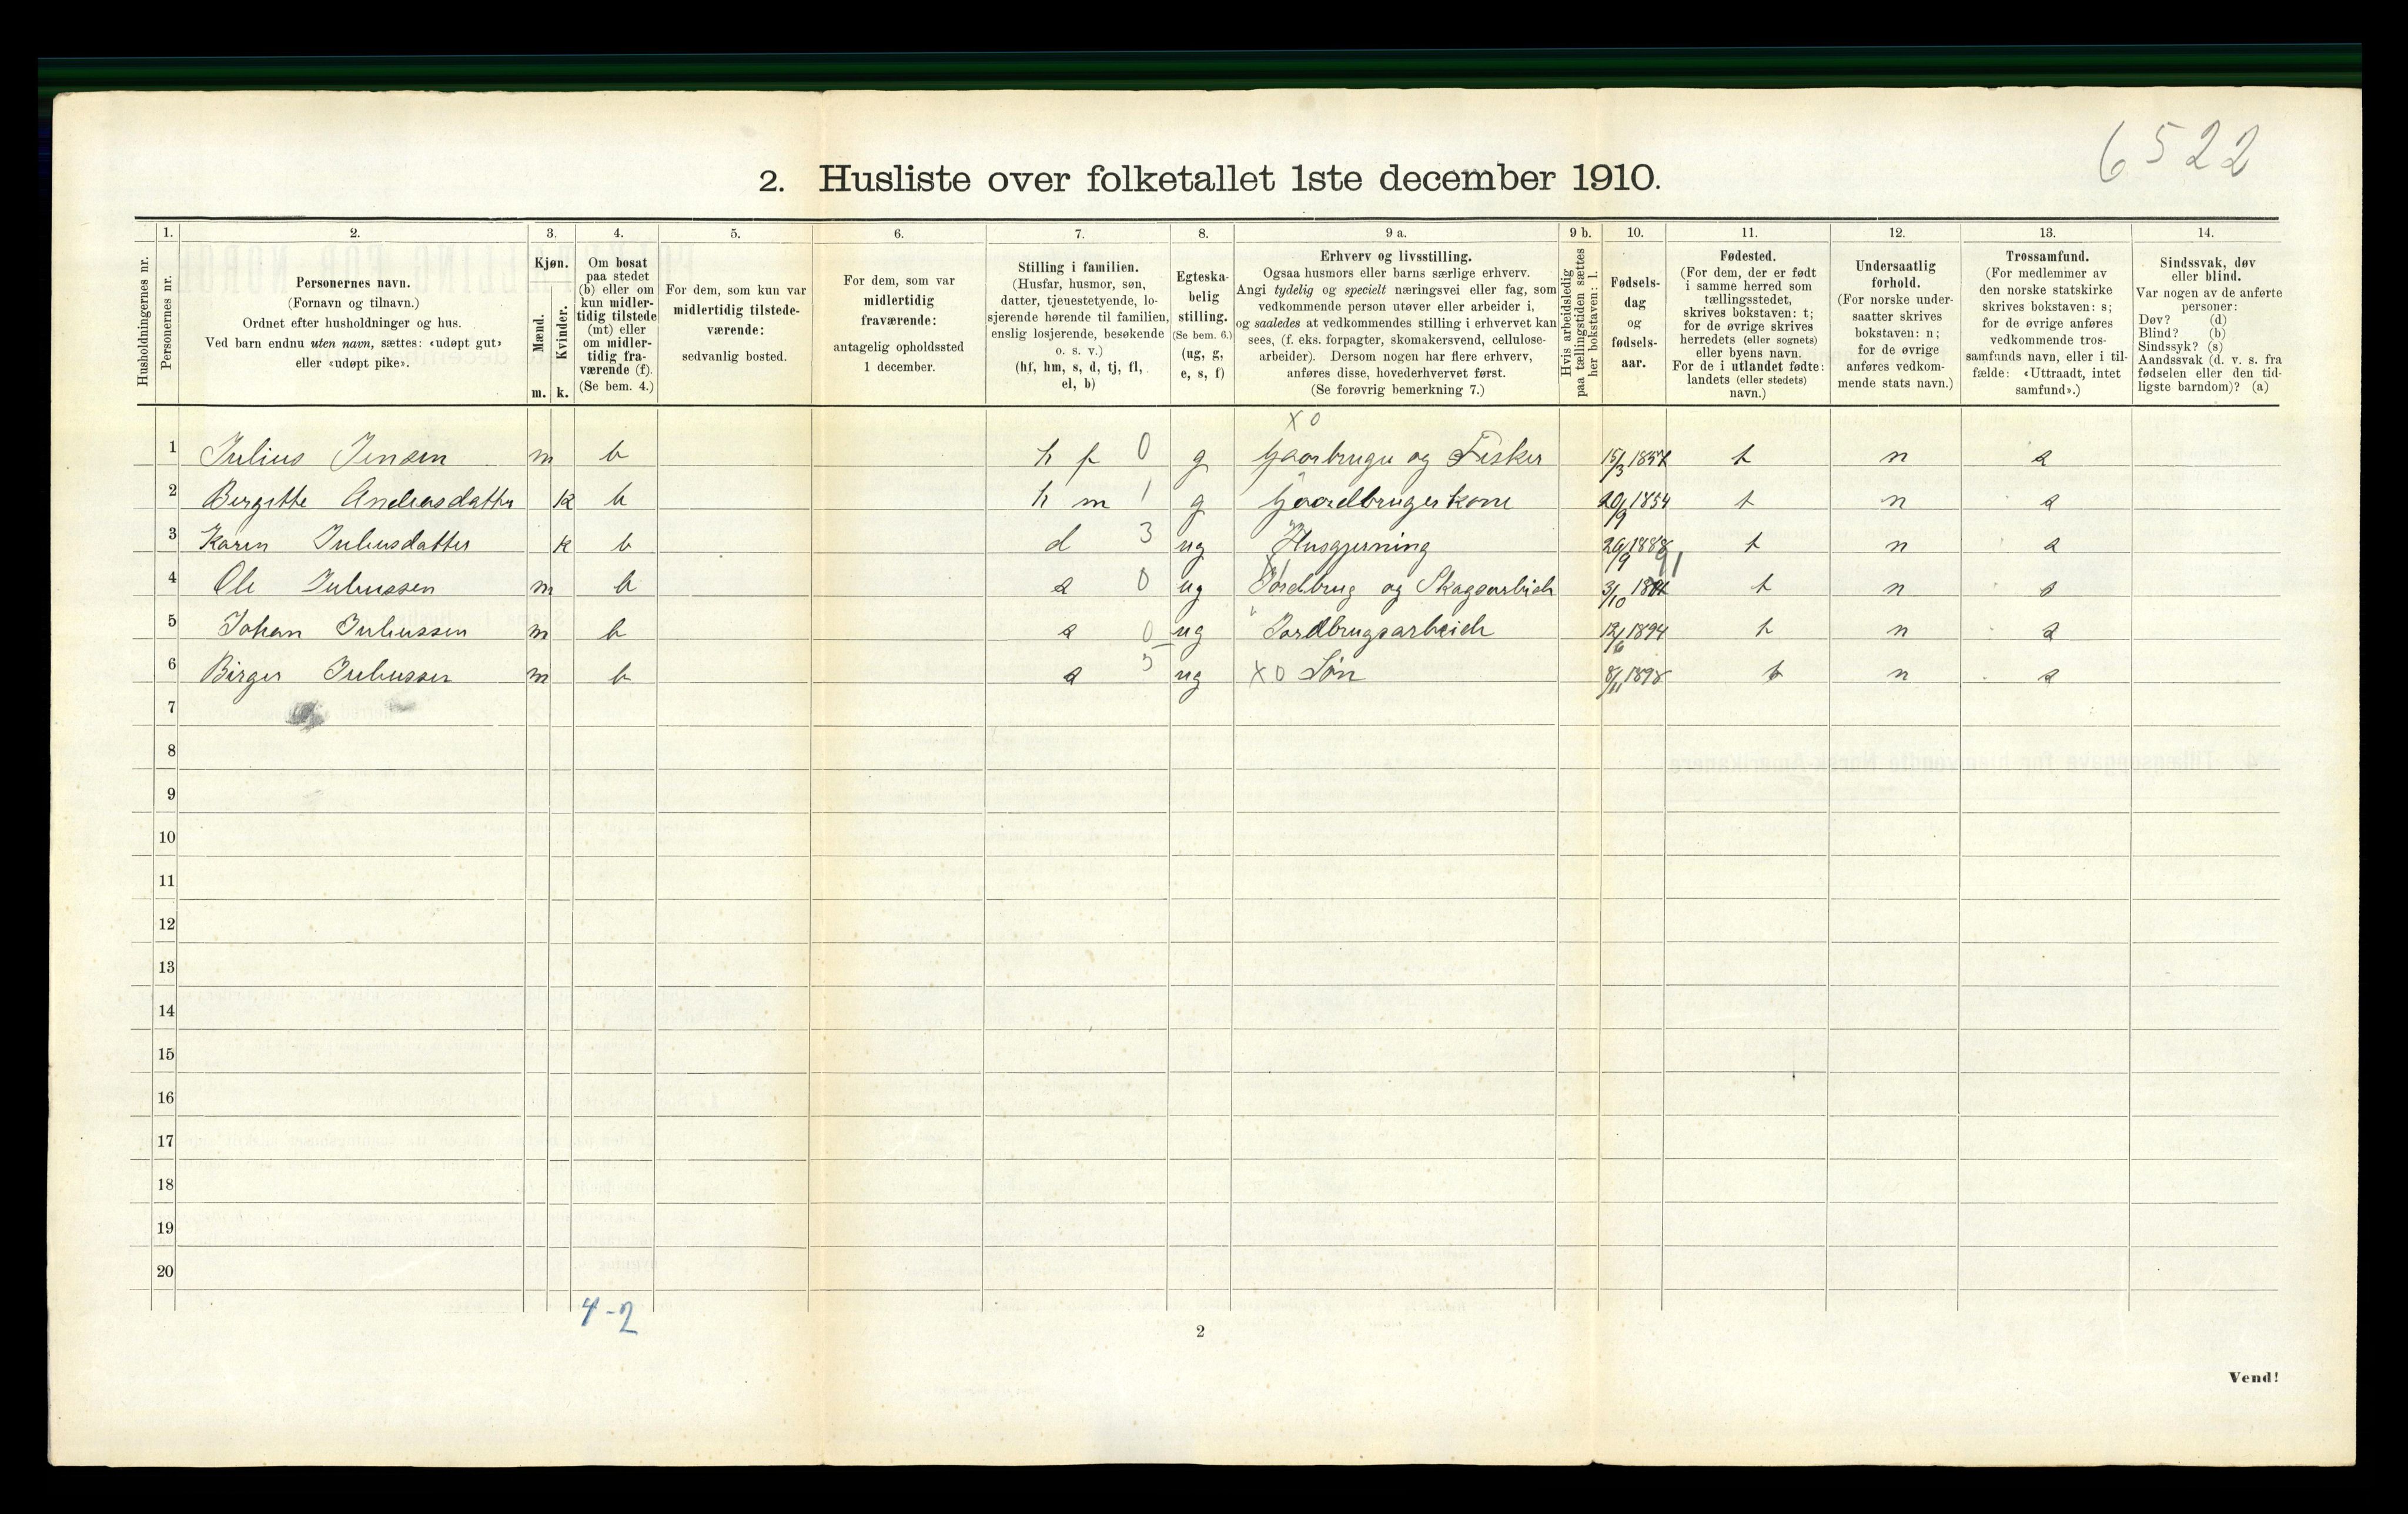 6522
2. Husliste over folketallet 1ste december 1910.
Husholdningernes nr.
1. Personernes nr.
2. Personernes navn.
(Fornavn og tilnavn.)
Ordnet efter husholdninger og hus.
Ved barn endnu uten navn, sættes: «udøpt gut»
eller «udøpt pike».
3. Kjøn.
Mænd. m.
Kvinder. k.
4. Om bosat
paa stedet
(b) eller om
kun midler-
tidig tilstede
(mt) eller
om midler-
tidig fra-
værende (f).
(Se bem. 4.)
5. For dem, som kun var
midlertidig tilstede-
værende:
sedvanlig bosted.
6. For dem, som var
midlertidig
fraværende:
antagelig opholdssted
1 december.
7. Stilling i familien.
(Husfar, husmor, søn,
datter, tjenestetyende, lo-
sjerende hørende til familien,
enslig losjerende, besøkende
o. s. v.)
(hf, hm, s, d, tj, fl,
el, b)
8. Egteska-
belig
stilling.
(Se bem. 6.)
(ug, g,
e, s, f)
9 a. Erhverv og livsstilling.
Ogsaa husmors eller barns særlige erhverv.
Angi tydelig og specielt næringsvei eller fag, som
vedkommende person utøver eller arbeider i,
og saaledes at vedkommendes stilling i erhvervet kan
sees, (f. eks. forpagter, skomakersvend, cellulose-
arbeider). Dersom nogen har flere erhverv,
anføres disse, hovederhvervet først.
(Se forøvrig bemerkning 7.)
9 b. Hvis arbeidsledig
paa tællingstiden sættes
her bokstaven: l.
10. Fødsels-
dag
og
fødsels-
aar.
11. Fødested.
(For dem, der er født
i samme herred som
tællingsstedet,
skrives bokstaven: t;
for de øvrige skrives
herredets (eller sognets)
eller byens navn.
For de i utlandet fødte:
landets (eller stedets)
navn.)
12. Undersaatlig
forhold.
(For norske under-
saatter skrives
bokstaven: n;
for de øvrige
anføres vedkom-
mende stats navn.)
13. Trossamfund.
(For medlemmer av
den norske statskirke
skrives bokstaven: s;
for de øvrige anføres
vedkommende tros-
samfunds navn, eller i til-
fælde: «Uttraadt, intet
samfund».)
14. Sindssvak, døv
eller blind.
Var nogen av de anførte
personer:
Døv? (d)
Blind? (b)
Sindssyk? (s)
Aandssvak (d. v. s. fra
fødselen eller den tid-
ligste barndom)? (a)
X 0
1 Julius Jensen m b h f 0 g Gaarbruger og Fisker 15/3 t n s
2 Bergitte Andreasdatter k b h m 1 g Gaardbrugerkone 20/9 1854 t n s
3 Karen Juliusdatter k b d 3 ug Husgjerning 29/9 1888 t n s
4 Ole Juliussen m b s 0 ug Jordbrug og Skogsarbeide 3/10 91 t n s
5 Johan Juliussen m b s 0 ug Jordbrugsarbeide 12/6 1894 t n s
6 Birger Juliussen m b s 5 ug X 0 Søn 8/11 1898 t n s
7
8
9
10
11
12
13
14
15
16
17
18
19
20
4-2
2
Vend!